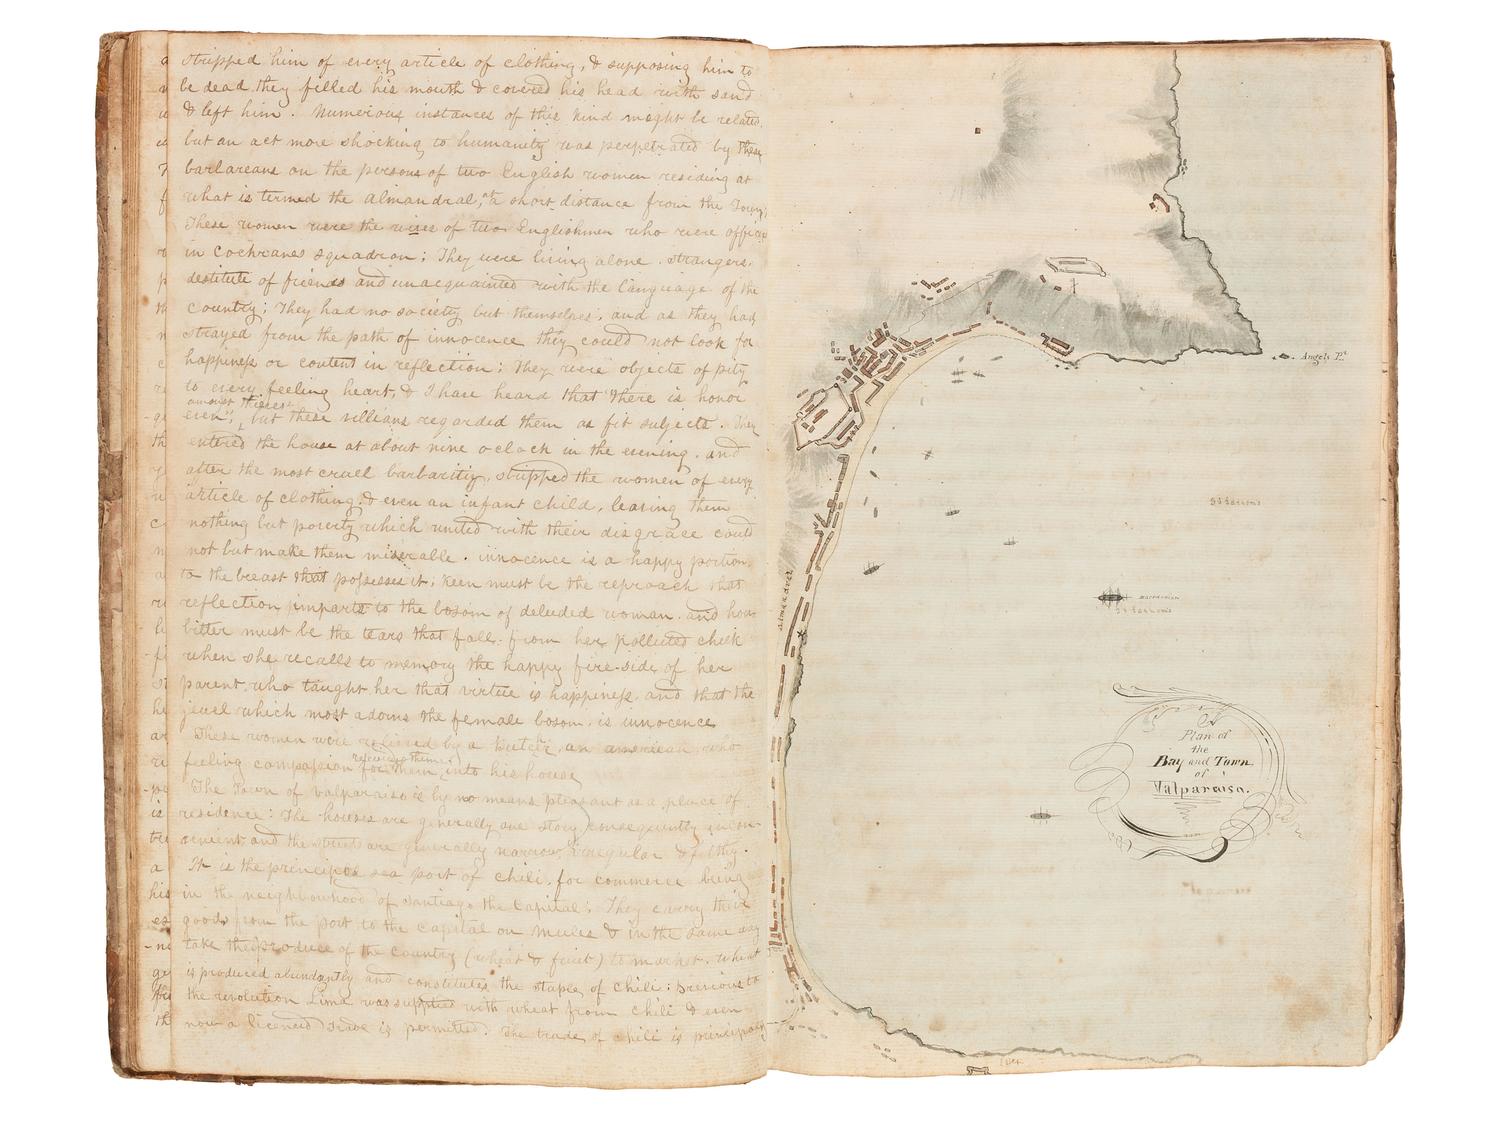 stripped him of every article of clothing, & supposing him to
be dead, they filled his mouth & covered his head with sand
& left him. Numerous instances of this kind might be related,
but an act more shocking to humanity was perpetrated by these
barbareans on the persons of two English women residing at
what is termed the Almandral, at a short distance from the Town,
These women were the wives of two Englishmen who were officers
in Cochranes squadron; They were living alone, strangers,
destitute of friends and unacquainted with the language of the
country; They had no society but themselves, and as they had
strayed from the path of innocence they could not look for
happiness or content in reflection; They were objects of pity
to every feeling heart, & I have heard that "there is honor
amongst thieves"
even, but these villians regarded them as fit subjects. They
entered the house at about nine o clock in the evening, and
after the most cruel barbarity, stripped the women of every
article of clothing, & even an infant child, leaving them
nothing but poverty which united with their disgrace could
not but make them miserable. innocence is a happy portion,
to the breast that possesses it; keen must be the reproach that
reflection imparts to the bosom of deluded woman, and how
bitter must be the tears that fall from her polluted cheek
when she recalls to memory the happy fire-side of her
parent, who taught her that virtue is happiness, and that the
jewel which most adorns the female bosom, is innocence
These women were relieved by a Butcher, an american, who
feeling compassion for them, received them into his house
The Town of Valparaiso is by no means pleasant as a place of
residence: The houses are generally one story, consequently incon-
venient and the streets are generally narrow, irregular & filthy.
It is the principal sea port of Chili, for commerce being
in the neighbourhood of Santiago the Capital; They carry their
goods from the port to the capital on mules & in the same way
take the produce of the country (wheat & fruit) to market. wheat
is produced abundantly and constitutes the staple of Chili: previous to
the revolution Lima was supplied with wheat from Chili & even
now a licenced trade is permitted. The trade of Chili is principally
Angels Pt.
Almendral
Macedonian
A
Plan of
the
Bay and Town
of
Valparaiso.